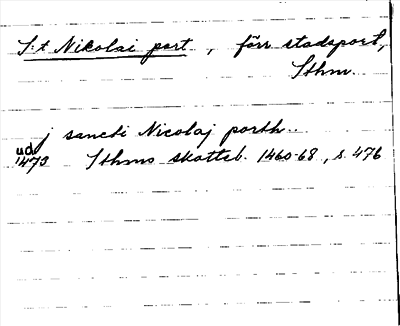 S:t Nikolai port, förr stadsport,
Sthm.
j sancti Nicolaj porth..
ud
1473 Sthms skatteb. 1460-68, s. 476